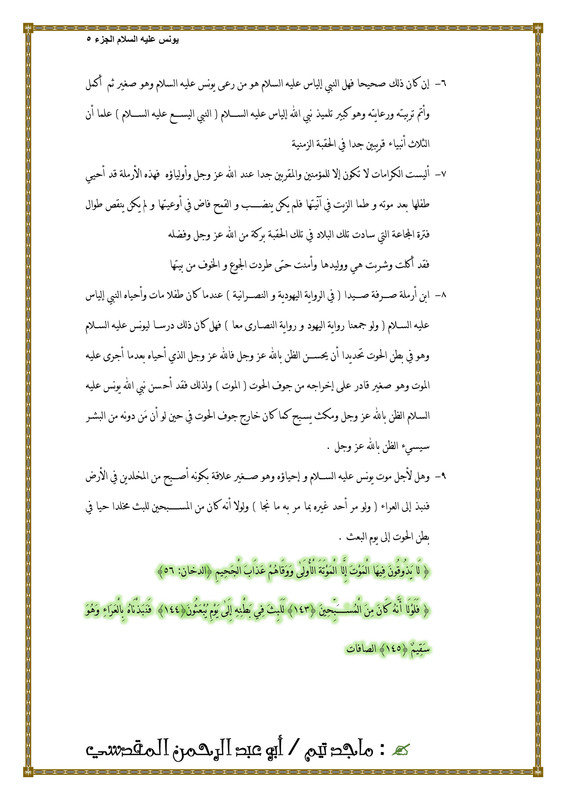 يونس عليه السلام الجزء ٥
٦- إن كان ذلك صحيحا فهل النبي إلياس عليه السلام هو من رعى يونس عليه السلام وهو صغير ثم أكمل
وأتم تربيته ورعايته وهو كبير تلميذ نبي الله إلياس عليه السلام ( النبي اليسع عليه السلام ) علما أن
الثلاث أنبياء قريبين جدا في الحقبة الزمنية
٧- أليست الكرامات لا تكون إلا للمؤمنين والمقربين جدا عند الله عز وجل وأولياؤه فهذه الأرملة قد أحيي
طفلها بعد موته و طما الزيت في آنيتها فلم يكن ينضب و القمح فاض في أوعيتها و لم يكن ينقص طوال
فترة المجاعة التي سادت تلك البلاد في تلك الحقبة بركة من الله عز وجل وفضله
فقد أكلت وشربت هي ووليدها وأمنت حتى طردت الجوع و الخوف من بيتها
٨- ابن أرملة صرفة صيدا ( في الرواية اليهودية و النصرانية ) عندما كان طفلا مات وأحياه النبي إلياس
عليه السلام ( ولو جمعنا رواية اليهود و رواية النصارى معا ) فهل كان ذلك درسا ليونس عليه السلام
وهو في بطن الحوت تحديدا أن يحسن الظن بالله عز وجل فالله عز وجل الذي أحياه بعدما أجرى عليه
الموت وهو صغير قادر على إخراجه من جوف الحوت ( الموت ) ولذلك فقد أحسن نبي الله يونس عليه
السلام الظن بالله عز وجل ومكث يسبح كما كان خارج جوف الحوت في حين لو أن مَن دونه من البشر
سيسيء الظن بالله عز وجل .
٩- وهل لأجل موت يونس عليه السلام و إحياؤه وهو صغير علاقة بكونه أصبح من المخلدين في الأرض
فنبذ إلى العراء ( ولو مر أحد غيره بما مر به ما نجا ) ولولا أنه كان من المسبحين للبث مخلدا حيا في
بطن الحوت إلى يوم البعث .
﴿ لَا يَذُوقُونَ فِيهَا الْمَوْتَ إِلَّا الْمَوْتَةَ الْأُولَى وَوَقَاهُمْ عَذَابَ الْجَحِيمِ ﴿الدخان: ٥٦﴾
﴿ فَلَوْلَا أَنَّهُ كَانَ مِنَ الْمُسَبِّحِينَ ﴿١٤٣﴾ لَلَبِثَ فِي بَطْنِهِ إِلَىٰ يَوْمِ يُبْعَثُونَ﴿١٤٤﴾ فَنَبَذْنَاهُ بِالْعَرَاءِ وَهُوَ
سَقِيمٌ ﴿١٤٥﴾ الصافات
✍ : ماجد تيم / أبو عبد الرحمن المقدسي